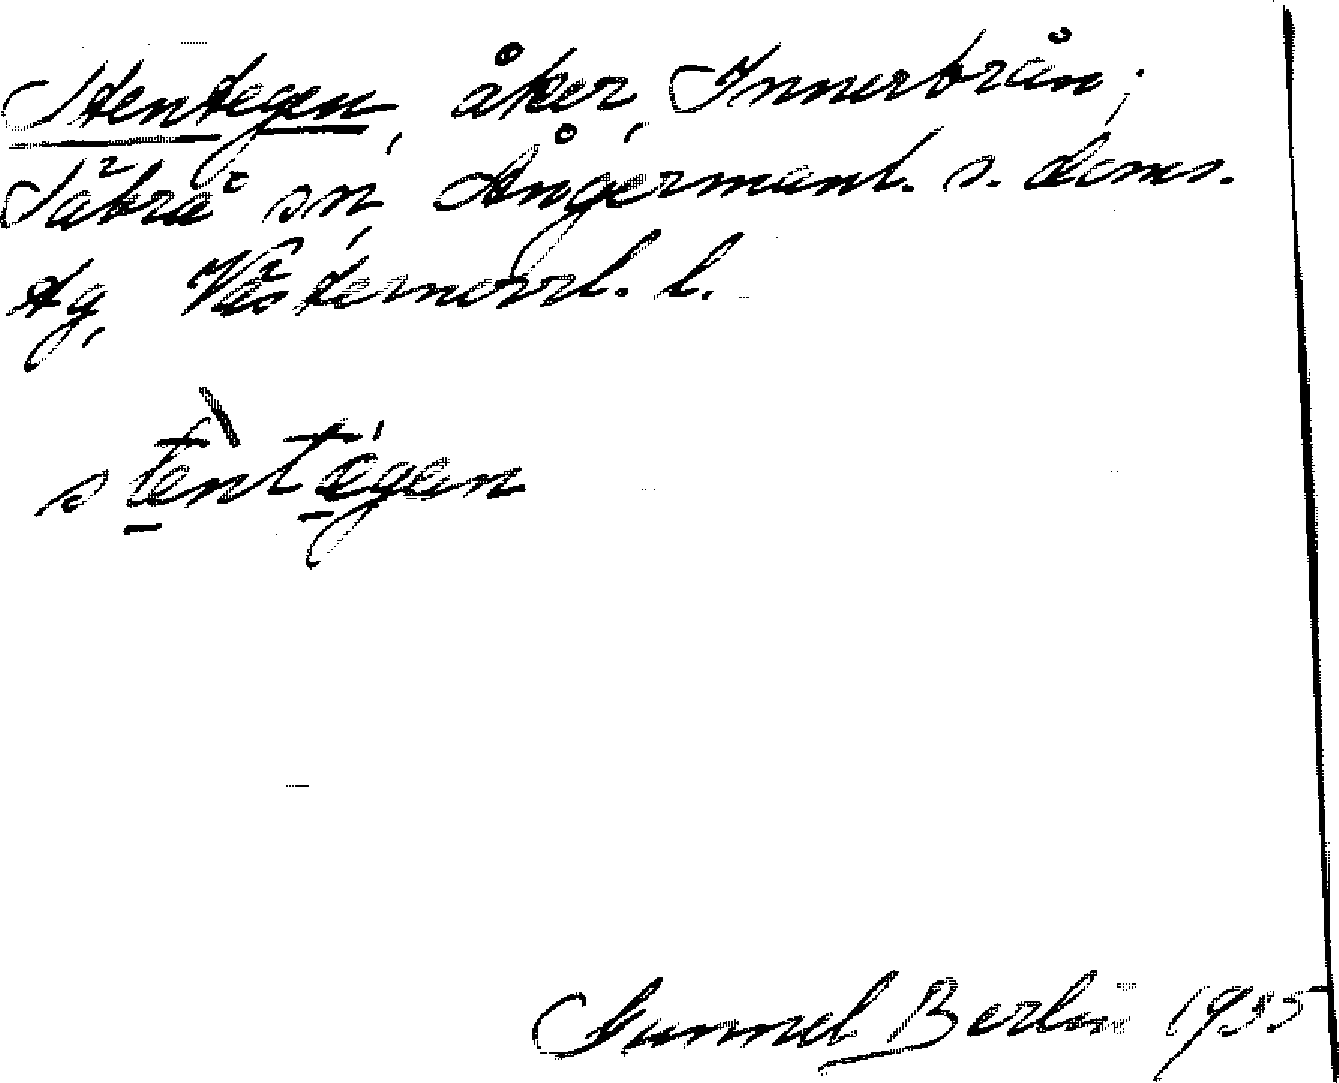 Stentegen, åker, Innerbrån,
Säbrå sn, Ångermanl. s. doms.
tg, Västernorrl. l.
stèntégen
Gunnel Berlin 1935